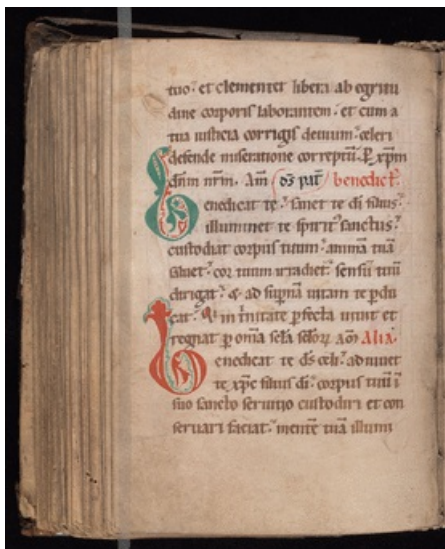 tuo· et clementer libera ab egritu
dine corporis laborantem· et cum a
tua iusticia corrigis deuium· celeri
defende miseratione correptū· P xp̄m
dn̄m nr̄m· Am̄ d̄s pat̄ benedict̄·
Benedicat te· sanet te di filius·
illuminet te spirit᷒ sanctus·
custodiat corpus tuum· animā tuā
saluet· cor tuum irradiet· sensū tuū
dirigat· & ad sup̄nā uitam te p̄du
cat· Qi in t̄nitate p̄fecta uiuit et
regnat p̄ om̄ia sc̄la sc̄lorꝝ am̄ Alia·
Benedicat te d̄s celi· adiuuet
te xp̄e filius di· corpus tuū ī
suo sancto seruitio custodiri et con
seruari faciat· mentē tuā illumi